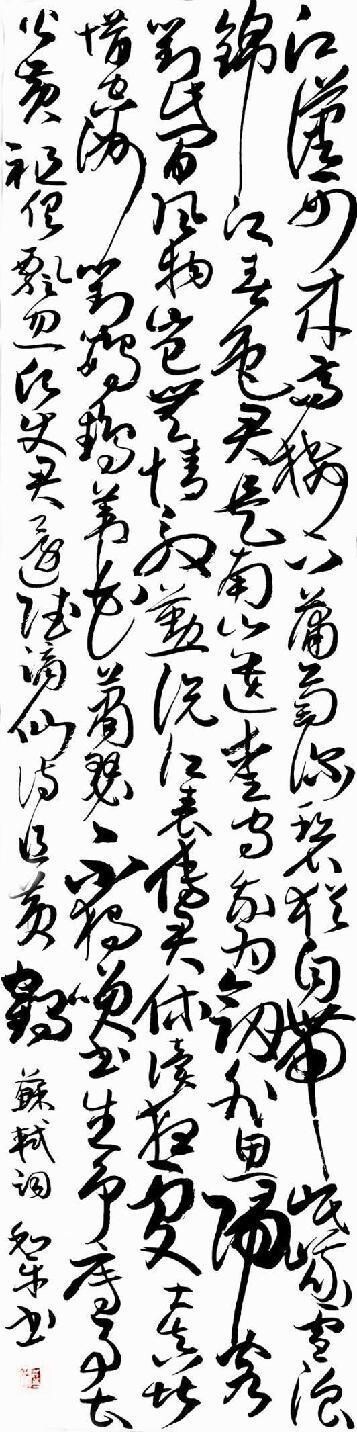 江漢西来高樓下蒲萄深碧猶自帶岷峨雪浪
錦江春色君是南山遺愛守我為劍外思歸客
對此間風物豈無情殷勤說江表傳君休讀狂處士真堪
惜空洲對鸚鵡葦花蕭瑟不獨笑書生爭底事曹
公黃祖俱飄忽願使君還賦謫仙詩追黃鶴 蘇軾詞 書